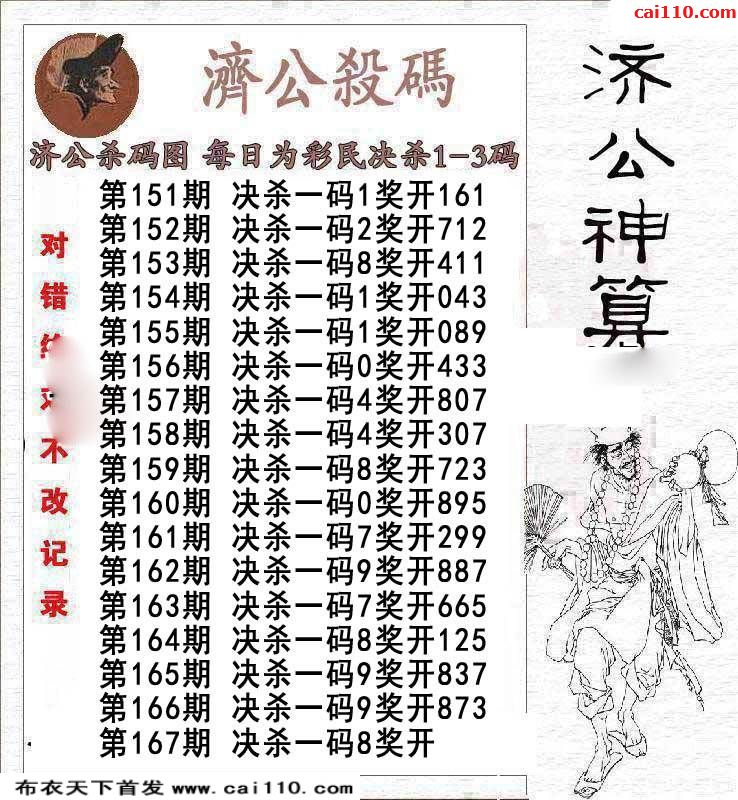 cai110.com
濟公殺碼
济公杀码图 每日为彩民决杀1-3码
第151期 决杀一码1奖开161
第152期 决杀一码2奖开712
第153期 决杀一码8奖开411
第154期 决杀一码1奖开043
第155期 决杀一码1奖开089
第156期 决杀一码0奖开433
第157期 决杀一码4奖开807
第158期 决杀一码4奖开307
第159期 决杀一码8奖开723
第160期 决杀一码0奖开895
第161期 决杀一码7奖开299
第162期 决杀一码9奖开887
第163期 决杀一码7奖开665
第164期 决杀一码8奖开125
第165期 决杀一码9奖开837
第166期 决杀一码9奖开873
第167期 决杀一码8奖开
对错不改记录
济公神算
布衣天下首发 www.cai110.com